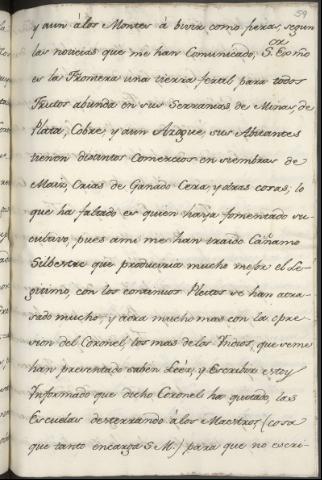 59
y aun á los Montes á bivir como fieras, segun
las noticias que me han Comunicado; S.or Ex.mo
es la Frontera una tierra fertil para todos
Frutos abunda en sus Serranias de Minas, de
Plata, Cobre, y aun Azogue, sus Abitantes
tienen distintos Comercios en siembras de
Maiz, Crias de Ganado Cera y otras cosas; lo
que ha faltado es quien haya fomentado su
cultivo, pues ami me han traido Cañamo
Silbestre que produciria mucho mejor el Le-
gitimo, con los continuos Pleitos se han atra-
sado mucho, y aora mucho mas con la opre-
sion del Coronel, los mas de los Yndios, que se me
han presentado saben Leér, y Escribir estoy
Ynformado que dicho Coronel ha quitado, las
Escuelas desterrando á los Maestros, (cosa
que tanto encarga S. M.) para que no escri-